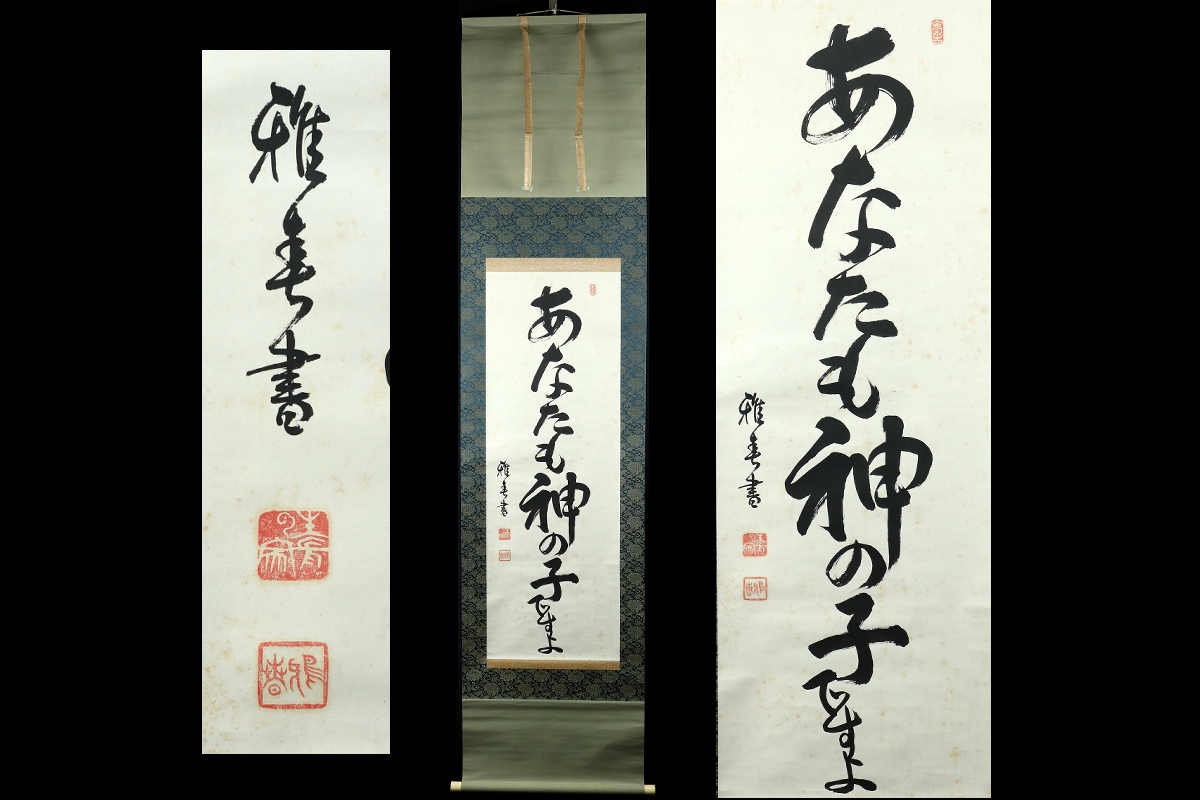 雅春書
あなたも神の子ですよ
雅春書
あなたも神の子ですよ
雅春書